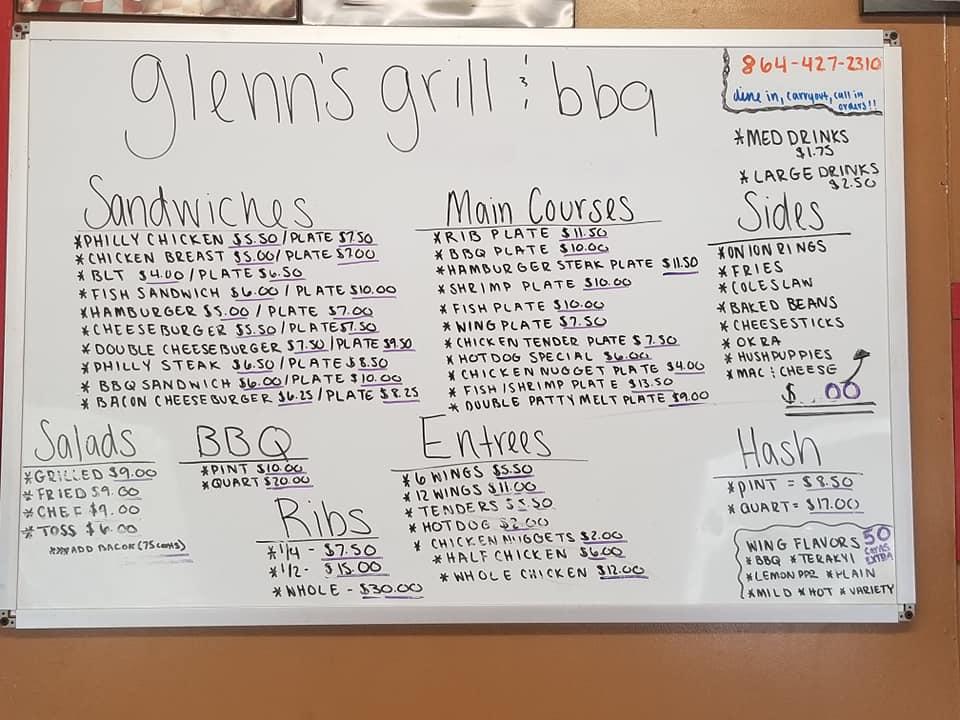 glenn's grill & bbq
864-427-2310
dine in, carryout, call in
orders!!
*MED DRINKS
$1.75
*LARGE DRINKS
$2.50
Sandwiches
*PHILLY CHICKEN $5.50/PLATE $7.50
*CHICKEN BREAST $5.00/PLATE $7.00
*BLT $4.00/PLATE $6.50
*FISH SANDWICH $6.00/PLATE $10.00
*HAMBURGER $5.00/PLATE $7.00
*CHEESEBURGER $5.50/PLATE $7.50
*DOUBLE CHEESEBURGER $7.50/PLATE $9.50
*PHILLY STEAK $6.50/PLATE $8.50
*BBQ SANDWICH $6.00/PLATE $10.00
*BACON CHEESEBURGER $6.25/PLATE $8.25
Main Courses
*RIB PLATE $11.50
*BBQ PLATE $10.00
*HAMBURGER STEAK PLATE $11.50
*SHRIMP PLATE $10.00
*FISH PLATE $10.00
*WING PLATE $7.50
*CHICKEN TENDER PLATE $7.50
*HOTDOG SPECIAL $6.00
*CHICKEN NUGGET PLATE $4.00
*FISH/SHRIMP PLATE $13.50
*DOUBLE PATTYMELT PLATE $9.00
Sides
*ONION RINGS
*FRIES
*COLESLAW
*BAKED BEANS
*CHEESESTICKS
*OKRA
*HUSHPUPPIES
*MAC & CHEESE
$ .00
Salads
*GRILLED $9.00
*FRIED $9.00
*CHEF $9.00
*TOSS $6.00
***ADD BACON (75 cents)
BBQ
*PINT $10.00
*QUART $20.00
Ribs
*1/4 - $7.50
*1/2 - $15.00
*WHOLE - $30.00
Entrees
*6 WINGS $5.50
*12 WINGS $11.00
*TENDERS $5.50
*HOTDOG $2.00
*CHICKEN NUGGETS $2.00
*HALF CHICKEN $6.00
*WHOLE CHICKEN $12.00
Hash
*PINT = $8.50
*QUART = $17.00
WING FLAVORS 50 cents EXTRA
*BBQ *TERAKYI
*LEMON PPR *PLAIN
*MILD *HOT *VARIETY